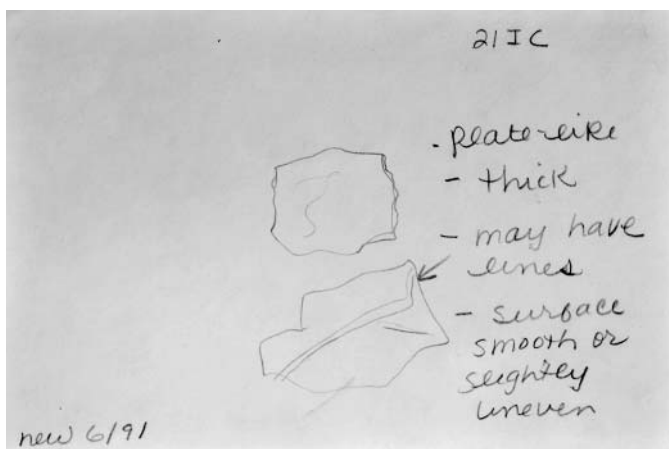 21 I C
- plate-like
- thick
- may have
lines
- surface
smooth or
slightly
uneven
new 6/91